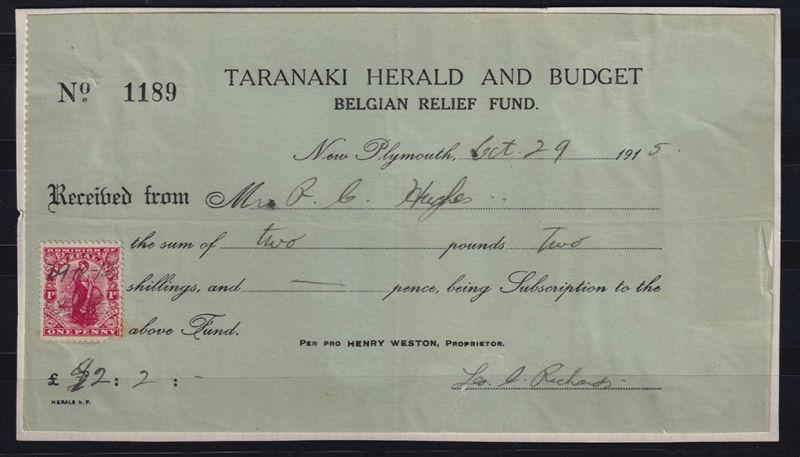 No. 1189
TARANAKI HERALD AND BUDGET
BELGIAN RELIEF FUND.
New Plymouth, Oct. 29 1915.
Received from Mr P. C. Hughes
the sum of two pounds two
shillings, and — pence, being Subscription to the
above Fund.
DOMINION OF
NEW ZEALAND
1D 1D
ONE PENNY
PER PRO HENRY WESTON, PROPRIETOR.
£ 2 : 2 : -
C. Richards
HERALD N.P.